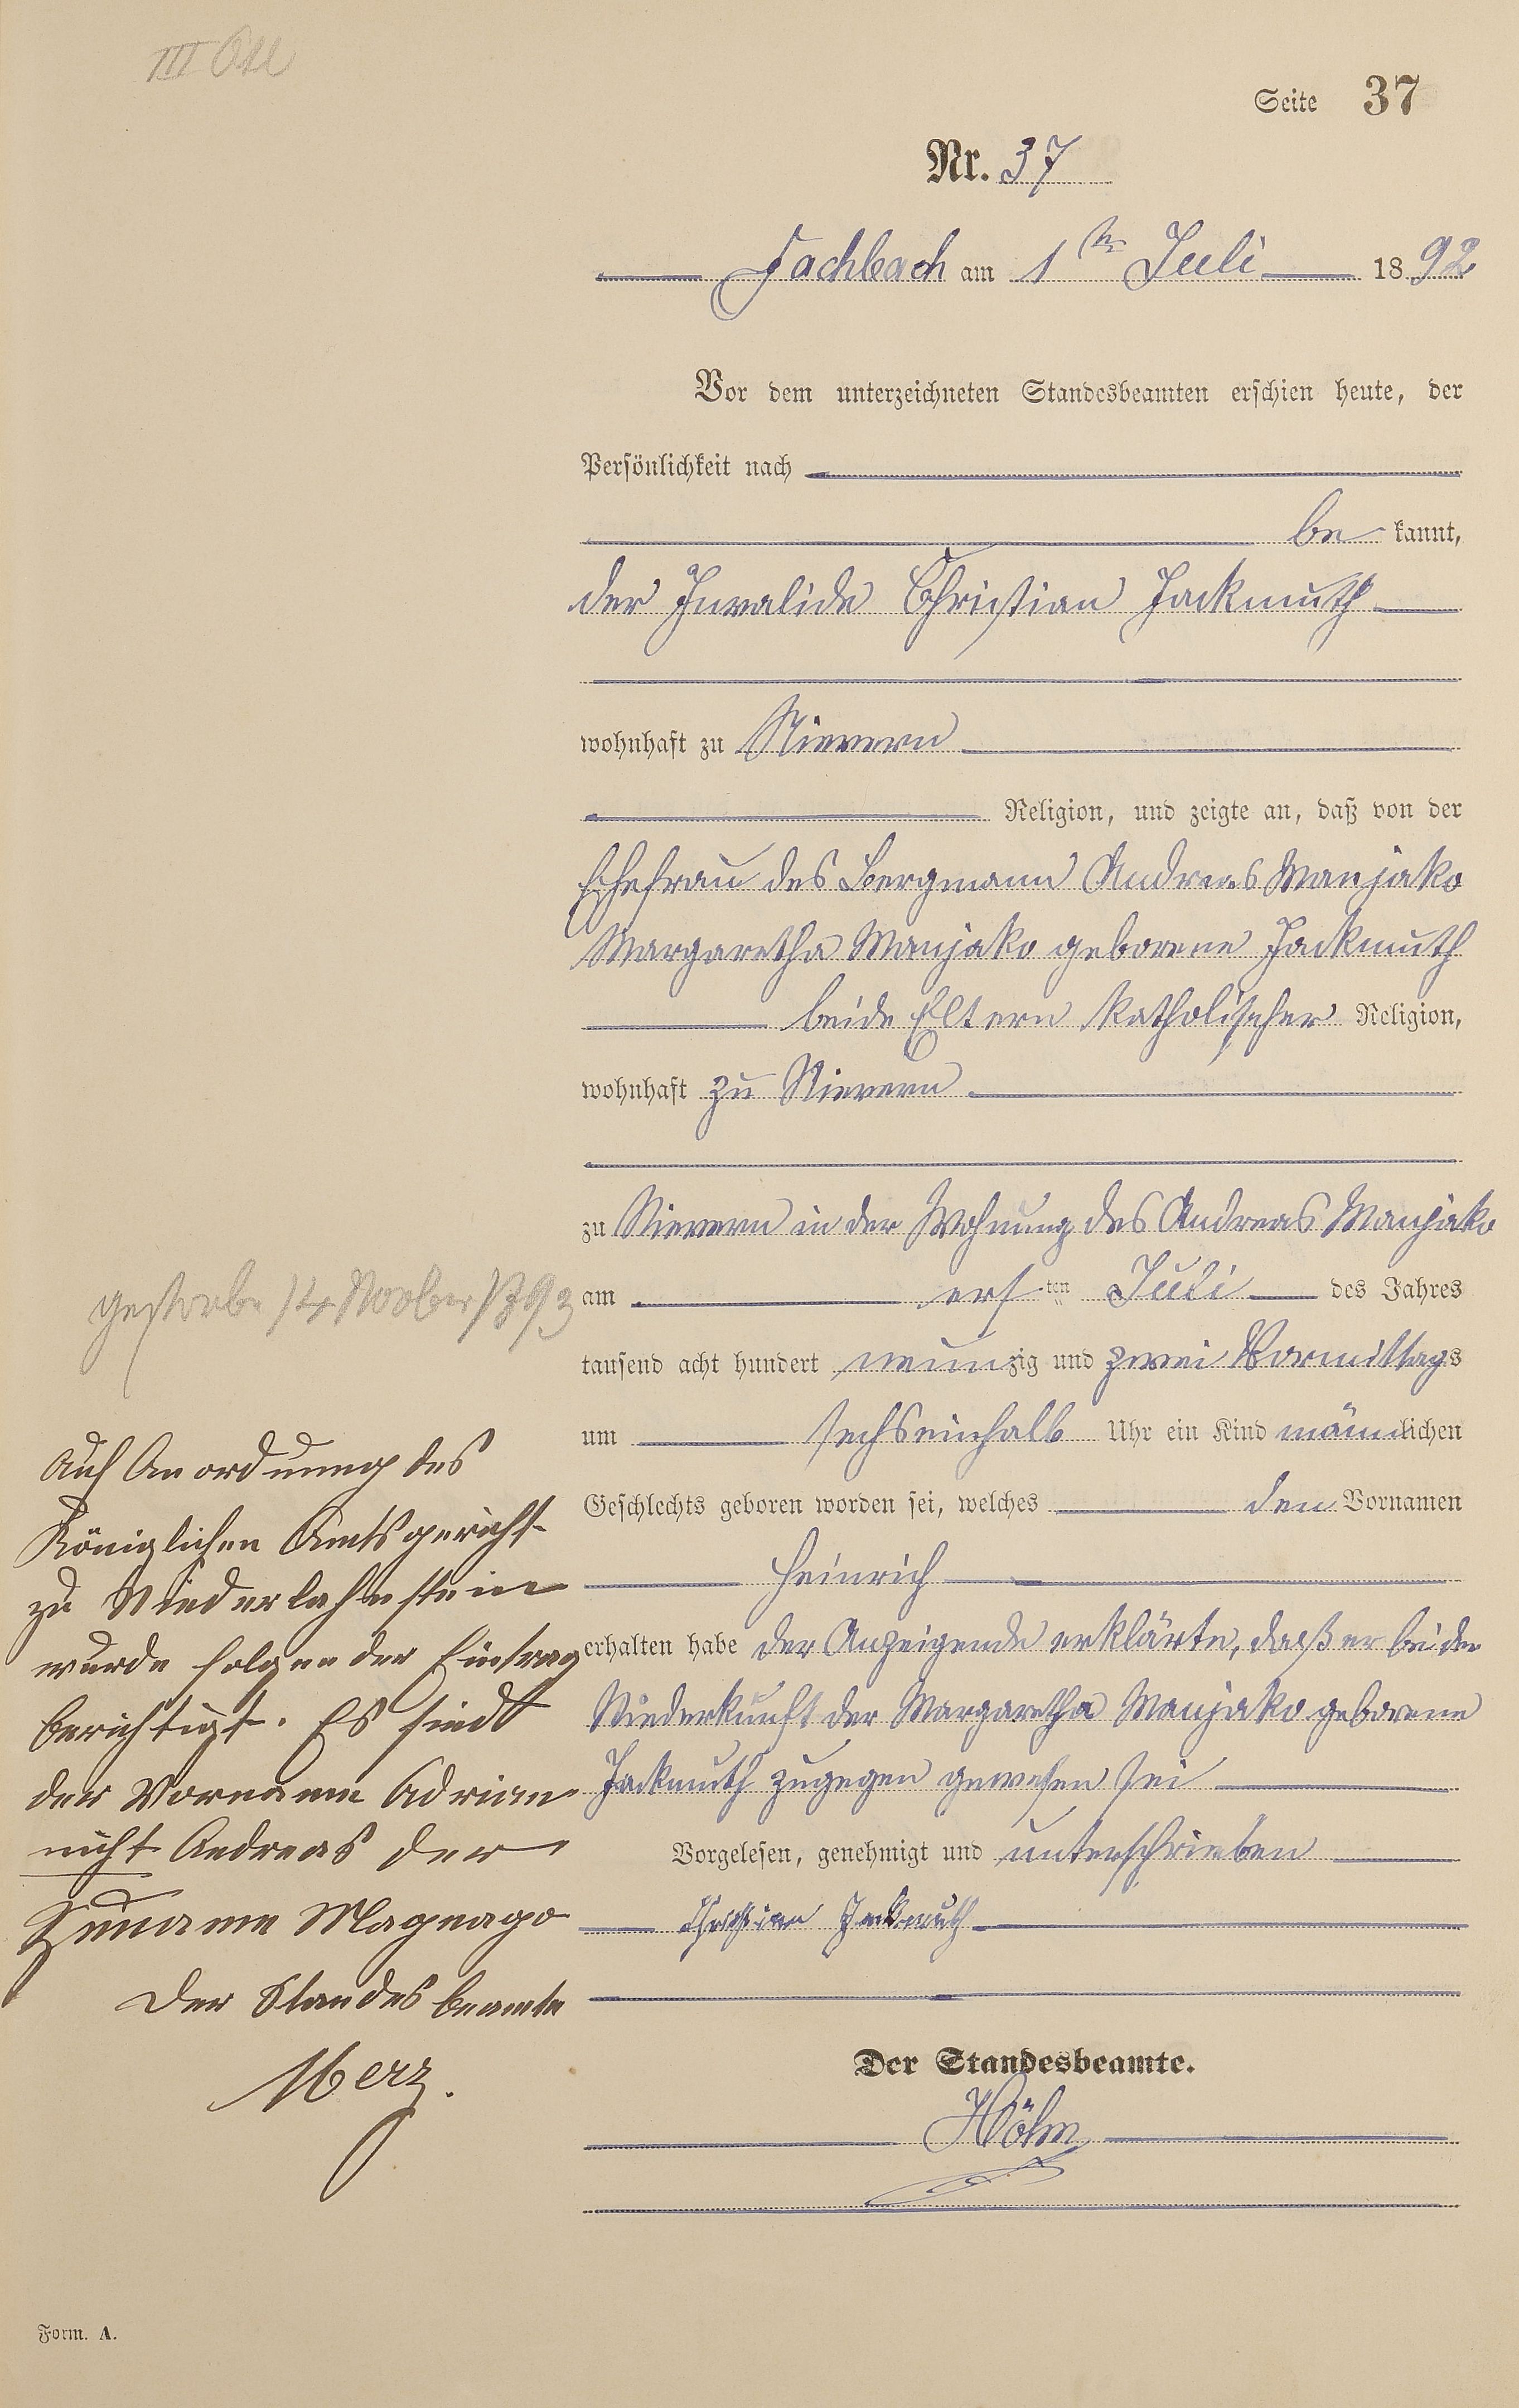 Seite 37
Nr. 37
Fachbach am 1ten Juli 1892
Vor dem unterzeichneten Standesbeamten erschien heute, der
Persönlichkeit nach
be kannt,
der Invalide Christian Jackmuth
wohnhaft zu Nievern
Religion, und zeigte an, daß von der
Ehefrau des Bergmann Andreas Manjako
Margaretha Manjako geborene Jackmuth
beide Eltern katholischer Religion,
wohnhaft zu Nievern
zu Nievern in der Wohnung des Andreas Manjako
am ersten Juli des Jahres
tausend acht hundert neunzig und zwei Vormittags
um sechseinhalb Uhr ein Kind männlichen
Geschlechts geboren worden sei, welches den Vornamen
Heinrich
erhalten habe der Anzeigende erklärte, daß er bei der
Niederkunft der Margaretha Manjako geborene
Jackmuth zugegen gewesen sei
Vorgelesen, genehmigt und unterschrieben
Christian Jackmuth
Der Standesbeamte.
Höhn
gestorbe 14 November 1893
Auf Anordnung des
Königlichen Amtsgericht
zu Niederlahnstein
wurde folgender Eintrag
berichtigt. Es sindt
der Vorname Adrian
nicht Andreas der
Zuname Magnago
Der Standesbeamte
Merz.
Form. A.